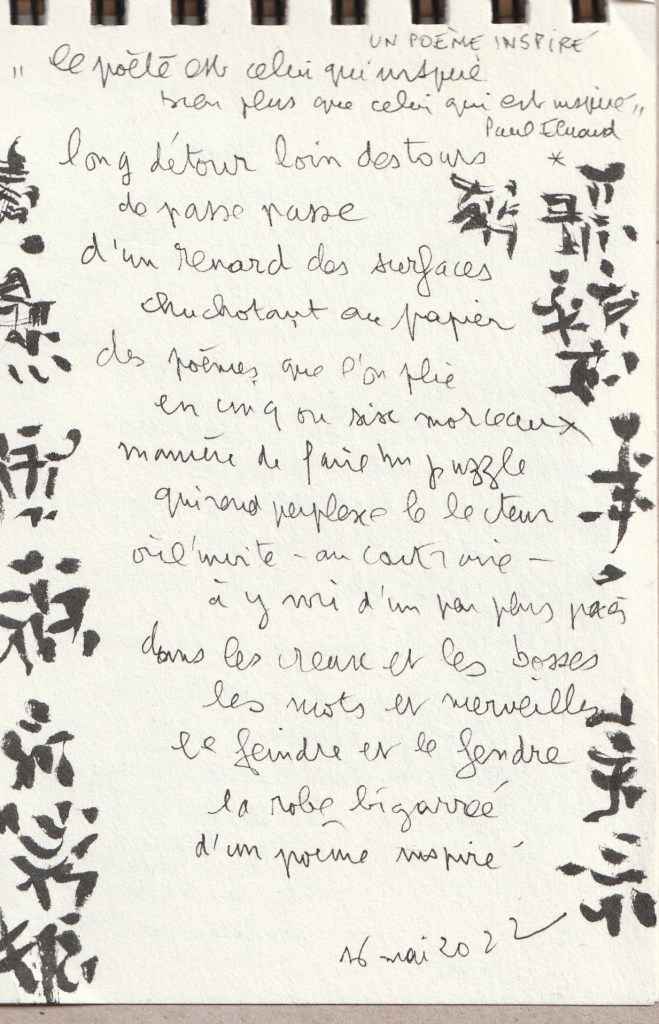 UN POÈME INSPIRÉ
" le poète est celui qui inspire
bien plus que celui qui est inspiré "
Paul Eluard
long détour loin des tours *
de passe passe
d'un renard des surfaces
chuchotant au papier
des poèmes que l'on plie
en cinq ou six morceaux
manière de faire un puzzle
qui rend perplexe le lecteur
où l'invite - au contraire -
à y voir d'un peu plus près
dans les creux et les bosses
les mots et merveilles
le feindre et le fendre
la robe bigarrée
d'un poème inspiré
16 mai 2022